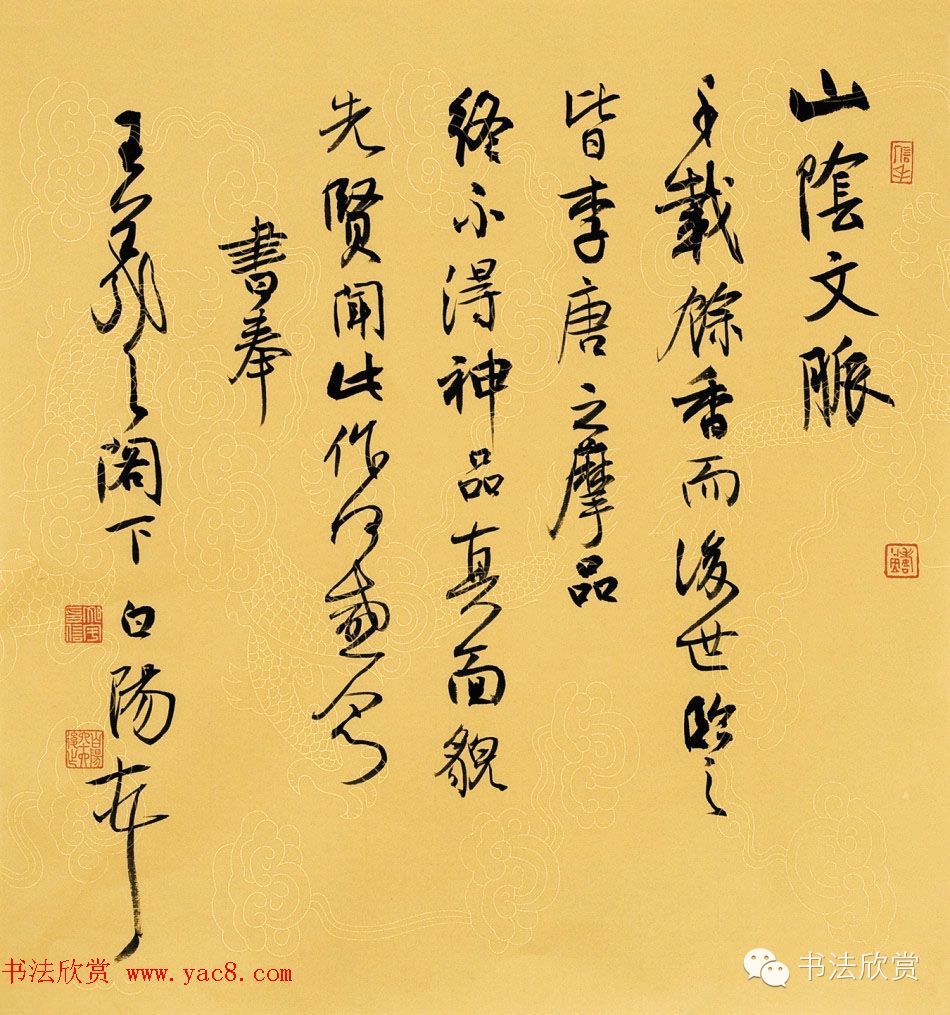 山陰文脈
千載餘香而後世臨之
皆李唐之摩品
終不得神品真面貌
先賢聞此作何感
書奉
王羲之閣下 白陽
书法欣赏 www.yac8.com
书法欣赏